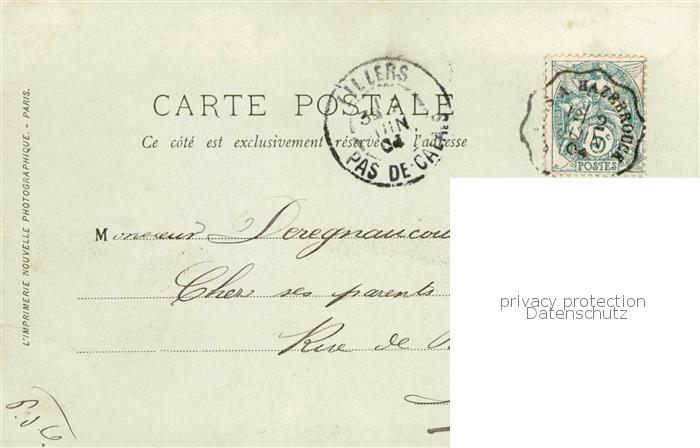 ILLERS
JUIN
04
PAS DE-CALAIS
HAZEBROUCK
POSTES
CARTE POSTALE
Ce côté est exclusivement réservé à l'adresse
L'IMPRIMERIE NOUVELLE PHOTOGRAPHIQUE. - PARIS.
Monsieur Deregnaucou
Chez ses parents
Rue de
privacy protection
Datenschutz